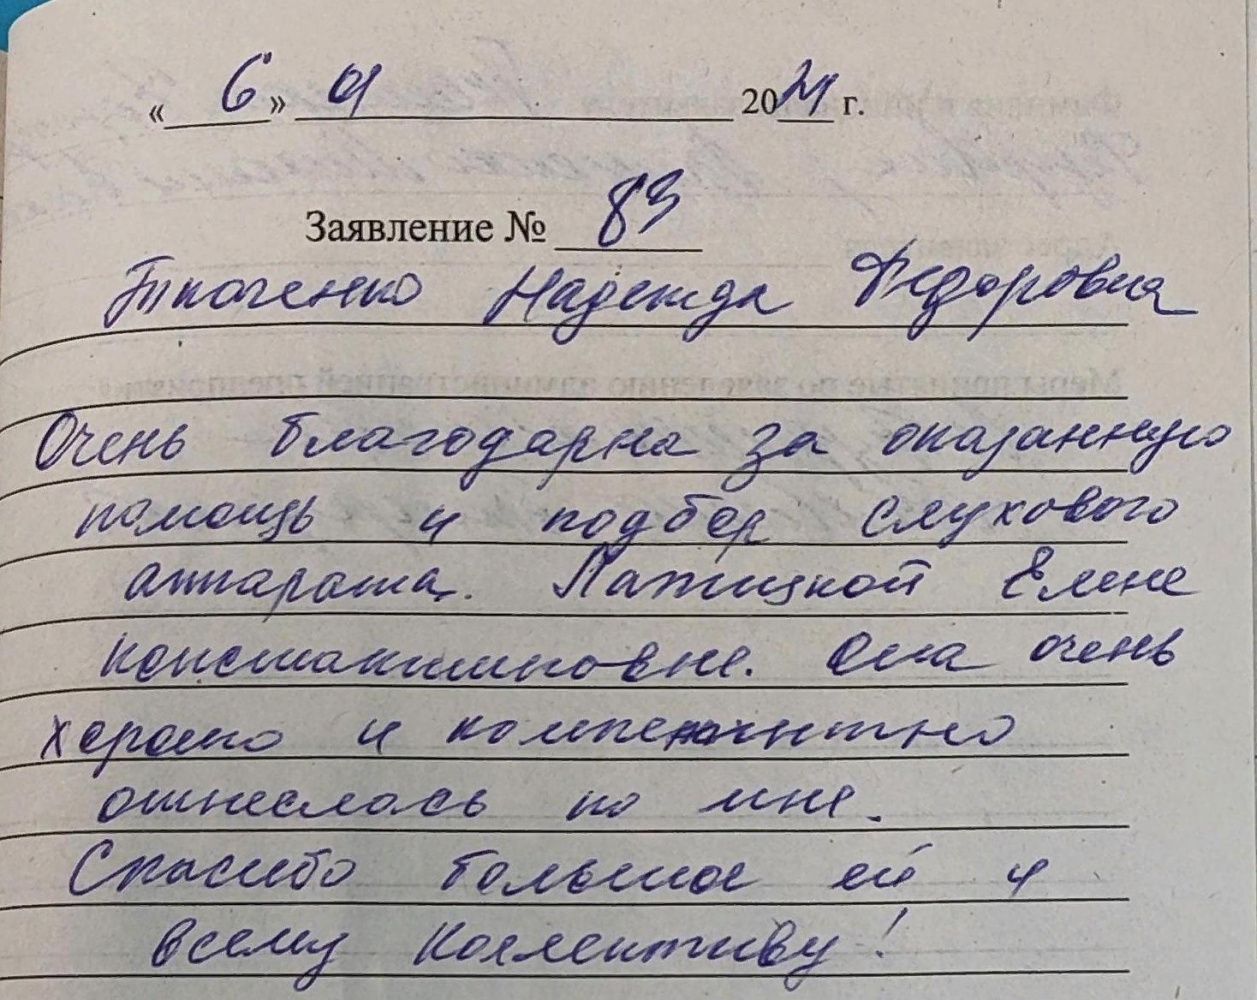 « 6 » 01 2021 г.
Заявление № 83
Ткаченко Надежда Федоровна
Очень благодарна за оказанную
помощь и подбор слухового
аппарата. Латицкой Елене
Константиновне. Она очень
хорошо и компетентно
отнеслась ко мне.
Спасибо большое ей и
всему коллективу!